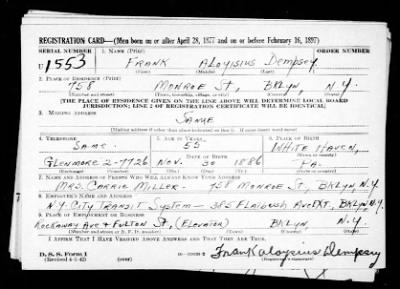 REGISTRATION CARD—(Men born on or after April 28, 1877 and on or before February 16, 1897)
SERIAL NUMBER 1. NAME (Print) ORDER NUMBER
U 1553 FRANK ALOYSIUS DEMPSEY
(First) (Middle) (Last)
2. PLACE OF RESIDENCE (Print)
758 MONROE ST, BKLYN, N.Y.
(Number and street) (Town, township, village, or city) (County) (State)
[THE PLACE OF RESIDENCE GIVEN ON THE LINE ABOVE WILL DETERMINE LOCAL BOARD
JURISDICTION; LINE 2 OF REGISTRATION CERTIFICATE WILL BE IDENTICAL]
3. MAILING ADDRESS
SAME
[Mailing address if other than place indicated on line 2. If same insert word same]
4. TELEPHONE 5. AGE IN YEARS 6. PLACE OF BIRTH
SAME 55 WHITE HAVEN,
DATE OF BIRTH
GLENMORE 2-7726 NOV. 30 1886 PA.
7. NAME AND ADDRESS OF PERSON WHO WILL ALWAYS KNOW YOUR ADDRESS
MRS. CARRIE MILLER. 758 MONROE ST, BKLYN N.Y.
8. EMPLOYER'S NAME AND ADDRESS
N.Y. CITY TRANSIT SYSTEM — 385 FLATBUSH AVE EXT, BKLYN, N.Y.
9. PLACE OF EMPLOYMENT OR BUSINESS
ROCKAWAY AVE & FULTON ST, (ELEVATOR) BKLYN, N.Y.
(Number and street or R. F. D. number) (Town) (County) (State)
I AFFIRM THAT I HAVE VERIFIED ABOVE ANSWERS AND THAT THEY ARE TRUE.
D. S. S. Form 1
(Revised 4-1-42) Frank Aloysius Dempsey